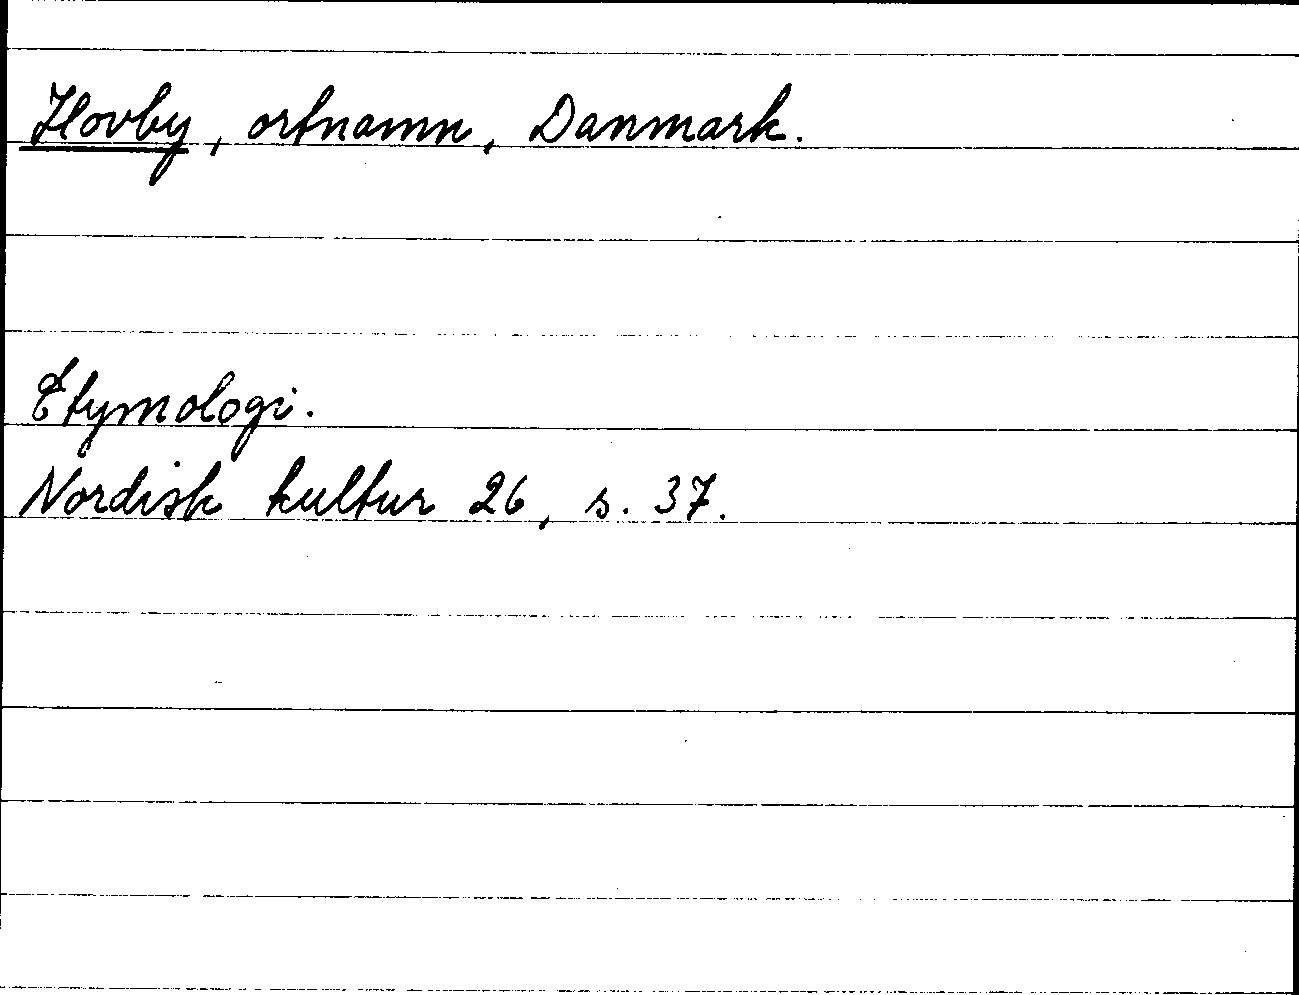 Hovby, ortnamn, Danmark.
Etymologi.
Nordisk kultur 26, s. 37.